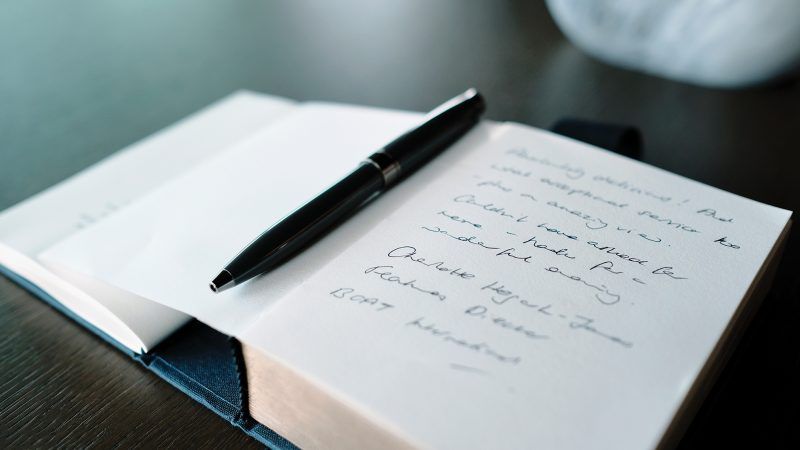 Absolutely delicious! And
what exceptional service too
- plus an amazing view.
Couldn't have asked for
more - thanks for a
wonderful evening.
Charlotte
Features Director
BOAT International